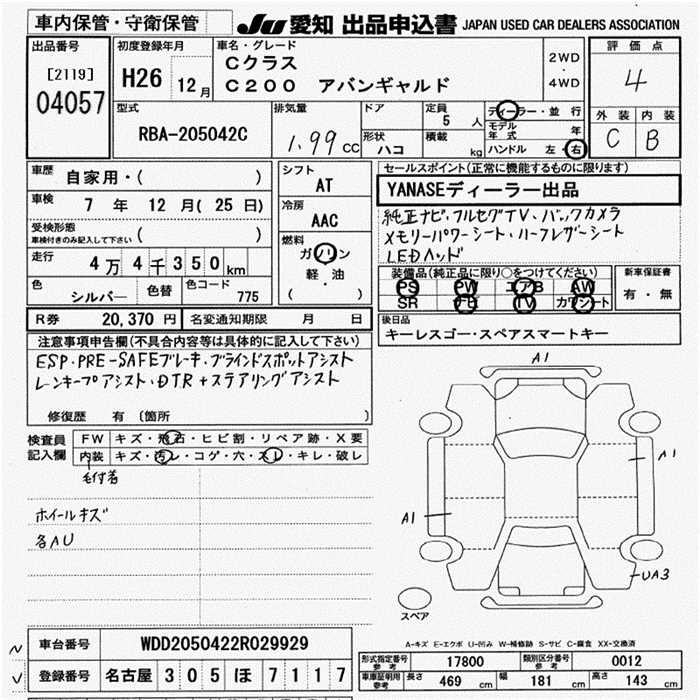 車内保管・守衛保管
JU 愛知 出品申込書 JAPAN USED CAR DEALERS ASSOCIATION
出品番号
[2119]
04057
初度登録年月
H26 12月
車名・グレード
Cクラス
C200 アバンギャルド
2WD
・
4WD
評価点
4
外装 内装
C B
型式
RBA-205042C
排気量
1.99 CC
ドア
形状
ハコ
定員
5 人
積載
kg
ディーラー・並行
モデル年式 年
ハンドル 左・右
車歴
自家用・( )
車検
7年 12月(25日)
受検形態
車検付きのみ記入して下さい ( )
走行
4万4千350km
色
シルバー
色替
色コード
775
シフト
AT
冷房
AAC
燃料
ガソリン
軽・油
( )
セールスポイント(正常に機能するものに限ります)
YANASEディーラー出品
純正ナビ・フルセグTV・バックカメラ
メモリーパワーシート・ハーフレザーシート
LEDヘッド
装備品(純正品に限り○をつけてください)
PS PW エアB AW
SR ナビ TV カワシート
新車保証書
有・無
R券 20,370円 名変通知期限 月 日
後日品
キーレスゴー・スペアスマートキー
注意事項申告欄(不具合内容等は具体的に記入して下さい)
ESP・PRE-SAFEブレーキ・ブラインドスポットアシスト
レーンキープアシスト・DTR+ステアリングアシスト
修復歴 有 〔箇所
検査員
記入欄
FW キズ・飛石・ヒビ割・リペア跡・X要
内装 キズ・汚レ・コゲ・穴・スレ・キレ・破レ
毛付着
ホイールキズ
各AU
A1
A1
A1
UA3
スペア
A-キズ E-エクボ U-凹み W-補修跡 S-サビ C-腐食 XX-交換済
車台番号 WDD2050422R029929
登録番号 名古屋 305 ほ 7117
型式指定番号 参考 17800 類別区分番号 参考 0012
車庫証明用 参考 長さ 469cm 幅 181cm 高さ 143cm